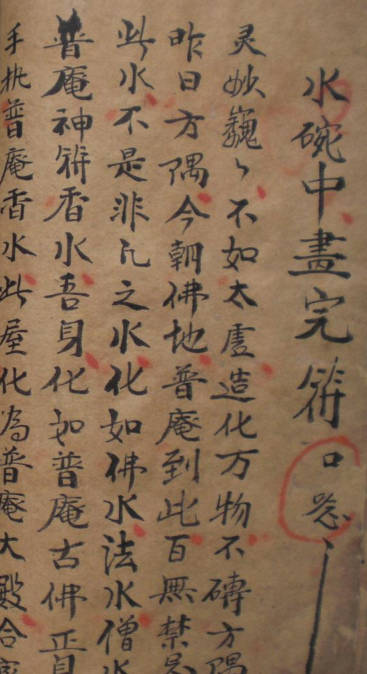 水碗中畫完符口念
灵妙巍々不如太虛造化万物不碍方隅
昨日方隅今朝佛地普庵到此百無禁忌
此水不是非凡之水化如佛水法水僧水
普庵神符香水吾身化如普庵古佛正身
手執普庵香水此屋化為普庵大殿合